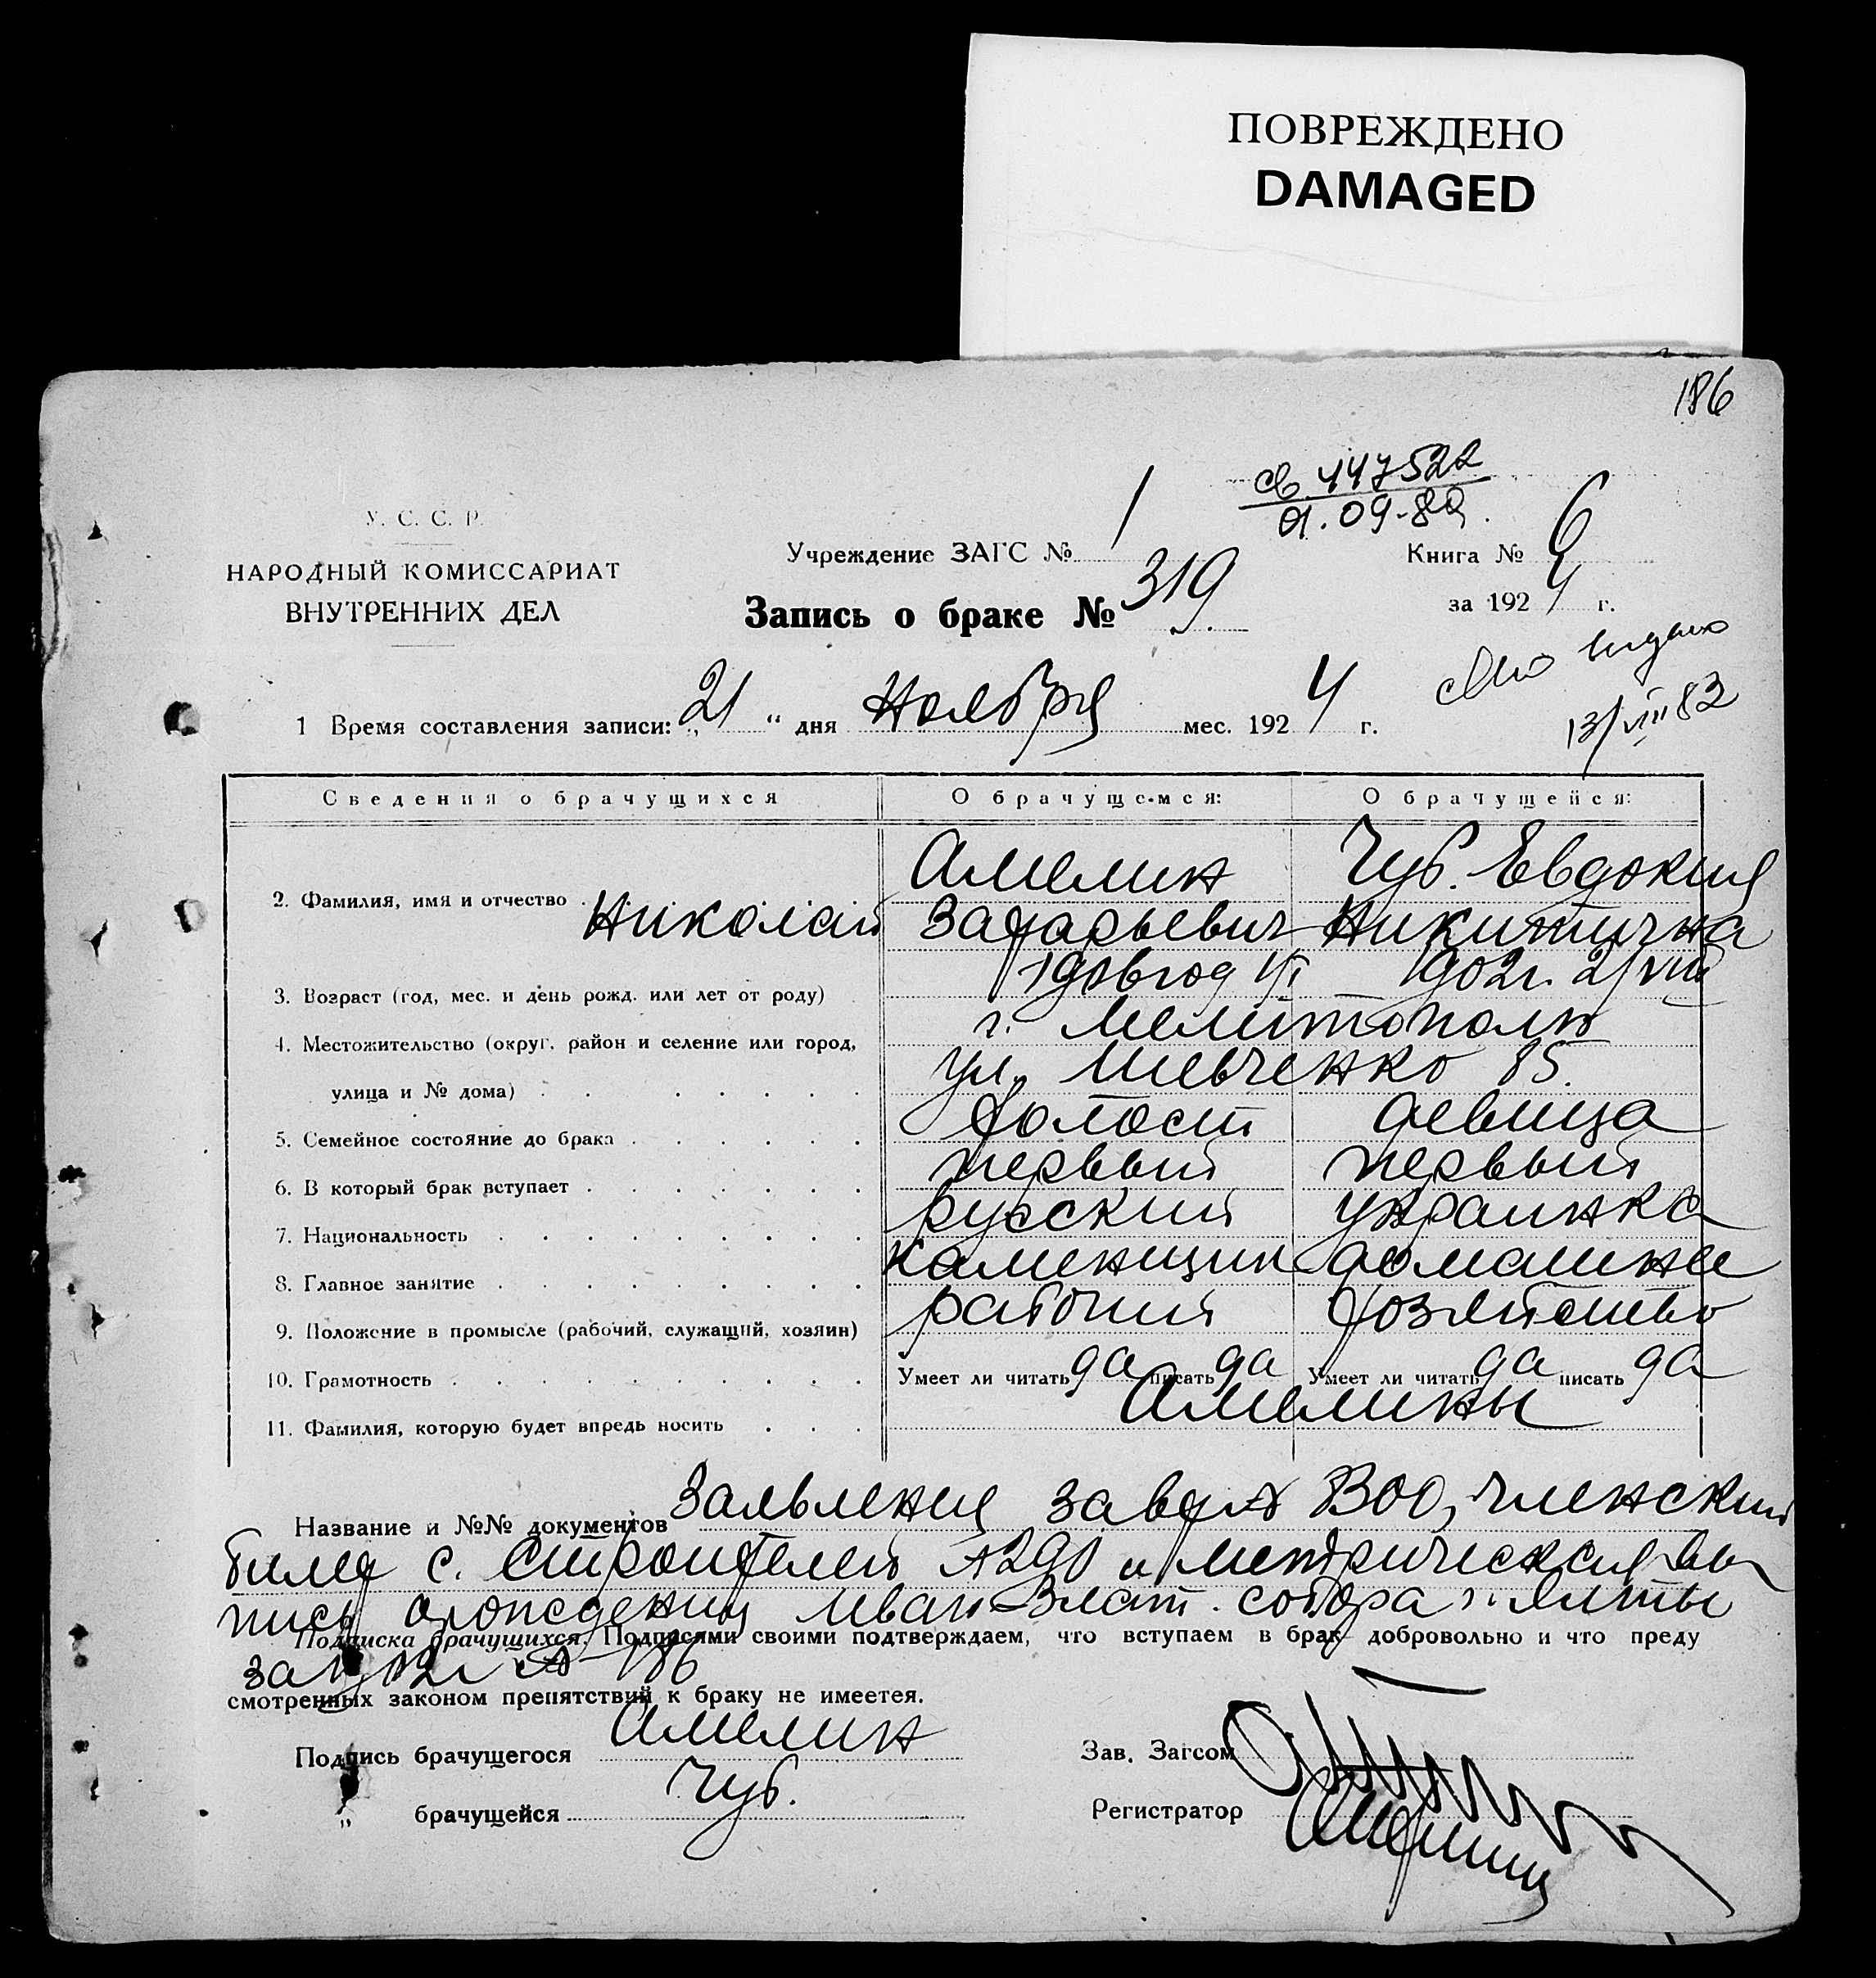 ПОВРЕЖДЕНО
DAMAGED
186
У. С. С. Р.
НАРОДНЫЙ КОМИССАРИАТ
ВНУТРЕННИХ ДЕЛ
Учреждение ЗАГС № 1
Запись о браке № 319
Книга № 6
за 1924 г.
13/VIII 83
1 Время составления записи: „21“ дня Ноября мес. 1924 г.
Сведения о брачущихся О брачущемся: О брачущейся:
Амелин Чуб. Евдокия
2. Фамилия, имя и отчество Николай Захарьевич Никитична
3. Возраст (год, мес. и день рожд. или лет от роду) 1902г. 2/VIII
4. Местожительство (округ, район и селение или город, г. Мелитополь
улица и № дома) ул. Шевченко 85.
5. Семейное состояние до брака холост девица
6. В который брак вступает первый первый
7. Национальность русский украинка
8. Главное занятие каменщик домашнее
9. Положение в промысле (рабочий, служащий, хозяин) рабочий хозяйство
10. Грамотность Умеет ли читать да писать да Умеет ли читать да писать да
11. Фамилия, которую будет впредь носить Амелины
Название и №№ документов Заявления членский
билет с. Строителей и метрическая вы
пись о рождении Иван-Злат. собора г. Ялты
Подписка брачущихся. Подписями своими подтверждаем, что вступаем в брак добровольно и что преду
за 1902г № 186
смотренных законом препятствий к браку не имеетея.
Подпись брачущегося Амелин
Зав. Загсом
„ брачущейся Чуб.
Регистратор